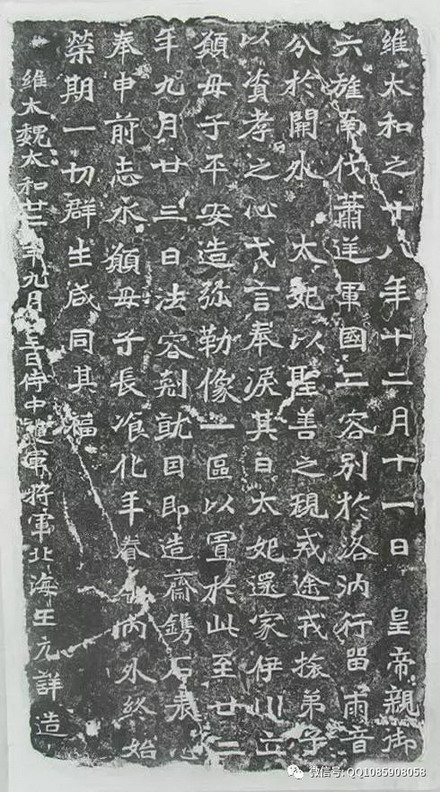 維太和之十八年十二月十一日 皇帝親御
六旌南伐蕭逆軍國二容別於洛汭行留兩音
分於闕外 太妃以聖善之規戒途戎旅弟子
以資孝之心戈言奉淚其日太妃還家伊川立
願母子平安造弥勒像一區以置於此至廿二
年九月廿三日法容剋就因即造齋鐫石表心
奉申前志永願母子長瘳化年眷屬內外終始
榮期一切群生咸同其福
維大魏太和廿二年九月廿三日侍中護軍將軍北海王元詳造
微信号: QQ1085908058